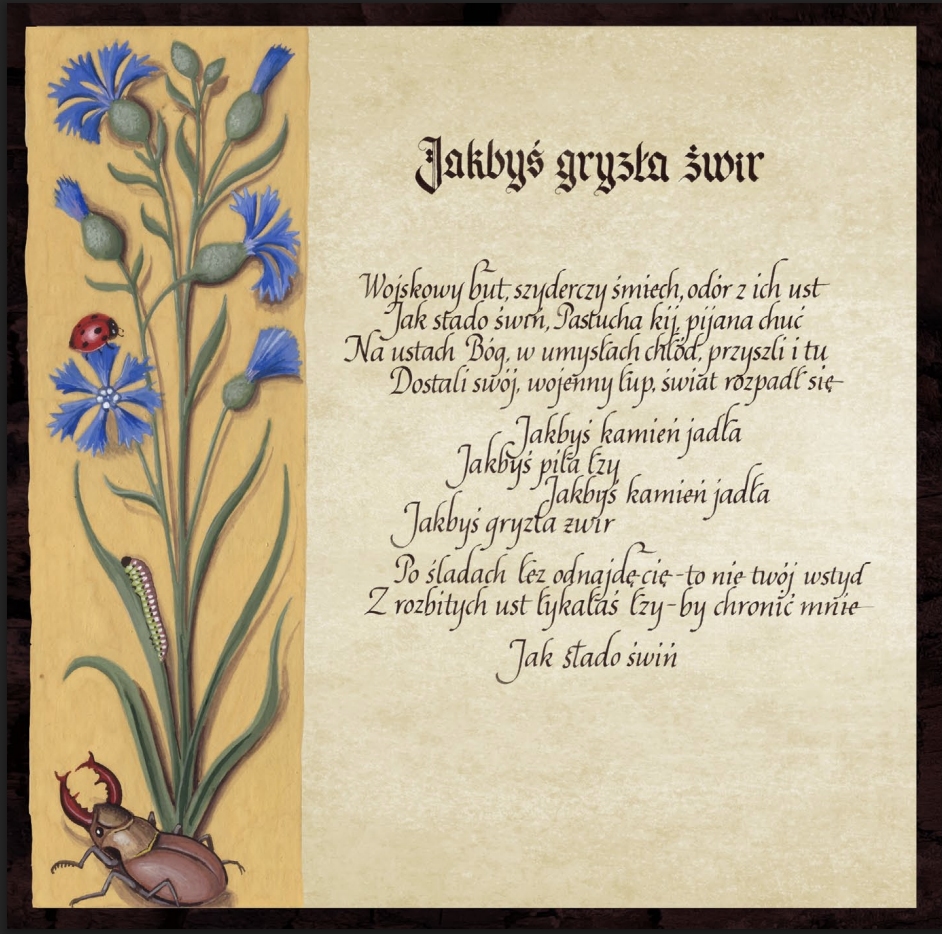 Jakbyś gryzła żwir
Wojskowy but, szyderczy śmiech, odór z ich ust
Jak stado świń, Pastucha kij, pijana chuć
Na ustach Bóg, w umysłach chłód, przyszli i tu
Dostali swój, wojenny łup, świat rozpadł się
Jakbyś kamień jadła
Jakbyś piła łzy
Jakbyś kamień jadła
Jakbyś gryzła żwir
Po śladach łez odnajdę cię - to nie twój wstyd
Z rozbitych ust łykałaś łzy - by chronić mnie
Jak stado świń